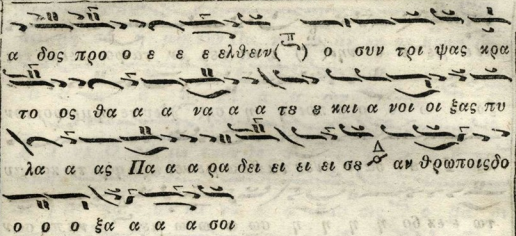 α δος προ ο ε ε ε ελθειν(π) ο συν τρι ψας κρα
το ος θα α α να α α τȣ ȣ και α νοι οι ξας πυ
λα α ας Πα α α ρα δει ει ει ει σȣ Δ αν θρωποις δο
ο ρ ο ξα α α α σοι